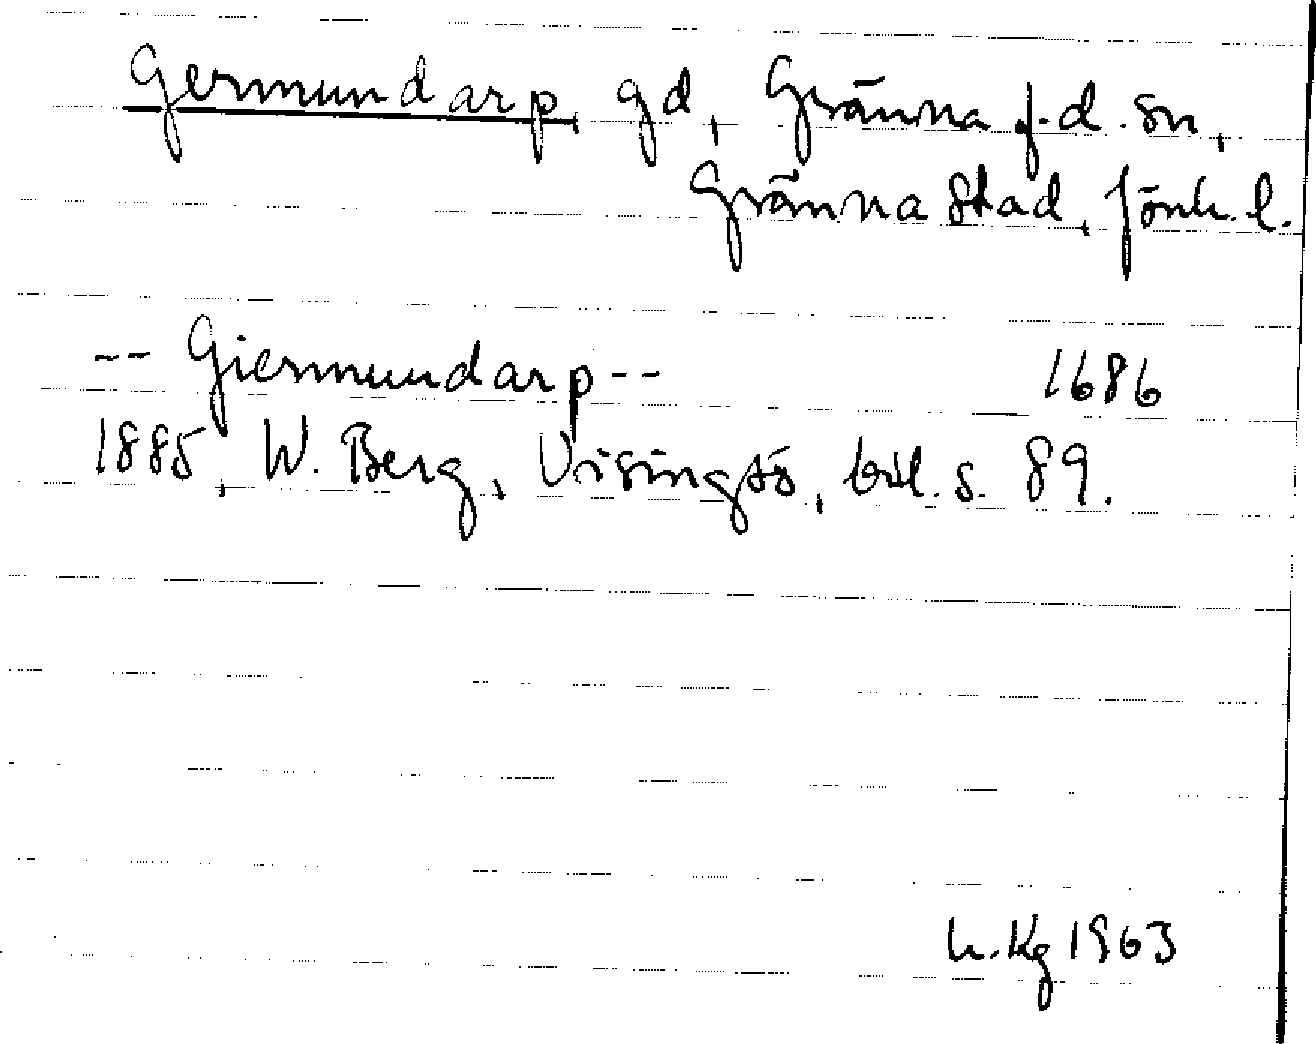 Germundarp, gd, Gränna f.d. sn,
Gränna stad, Jönk. l.
-- Giermundarp -- 1686
1885, W. Berg, Visingsö, bil. s. 89.
h. Kg 1963